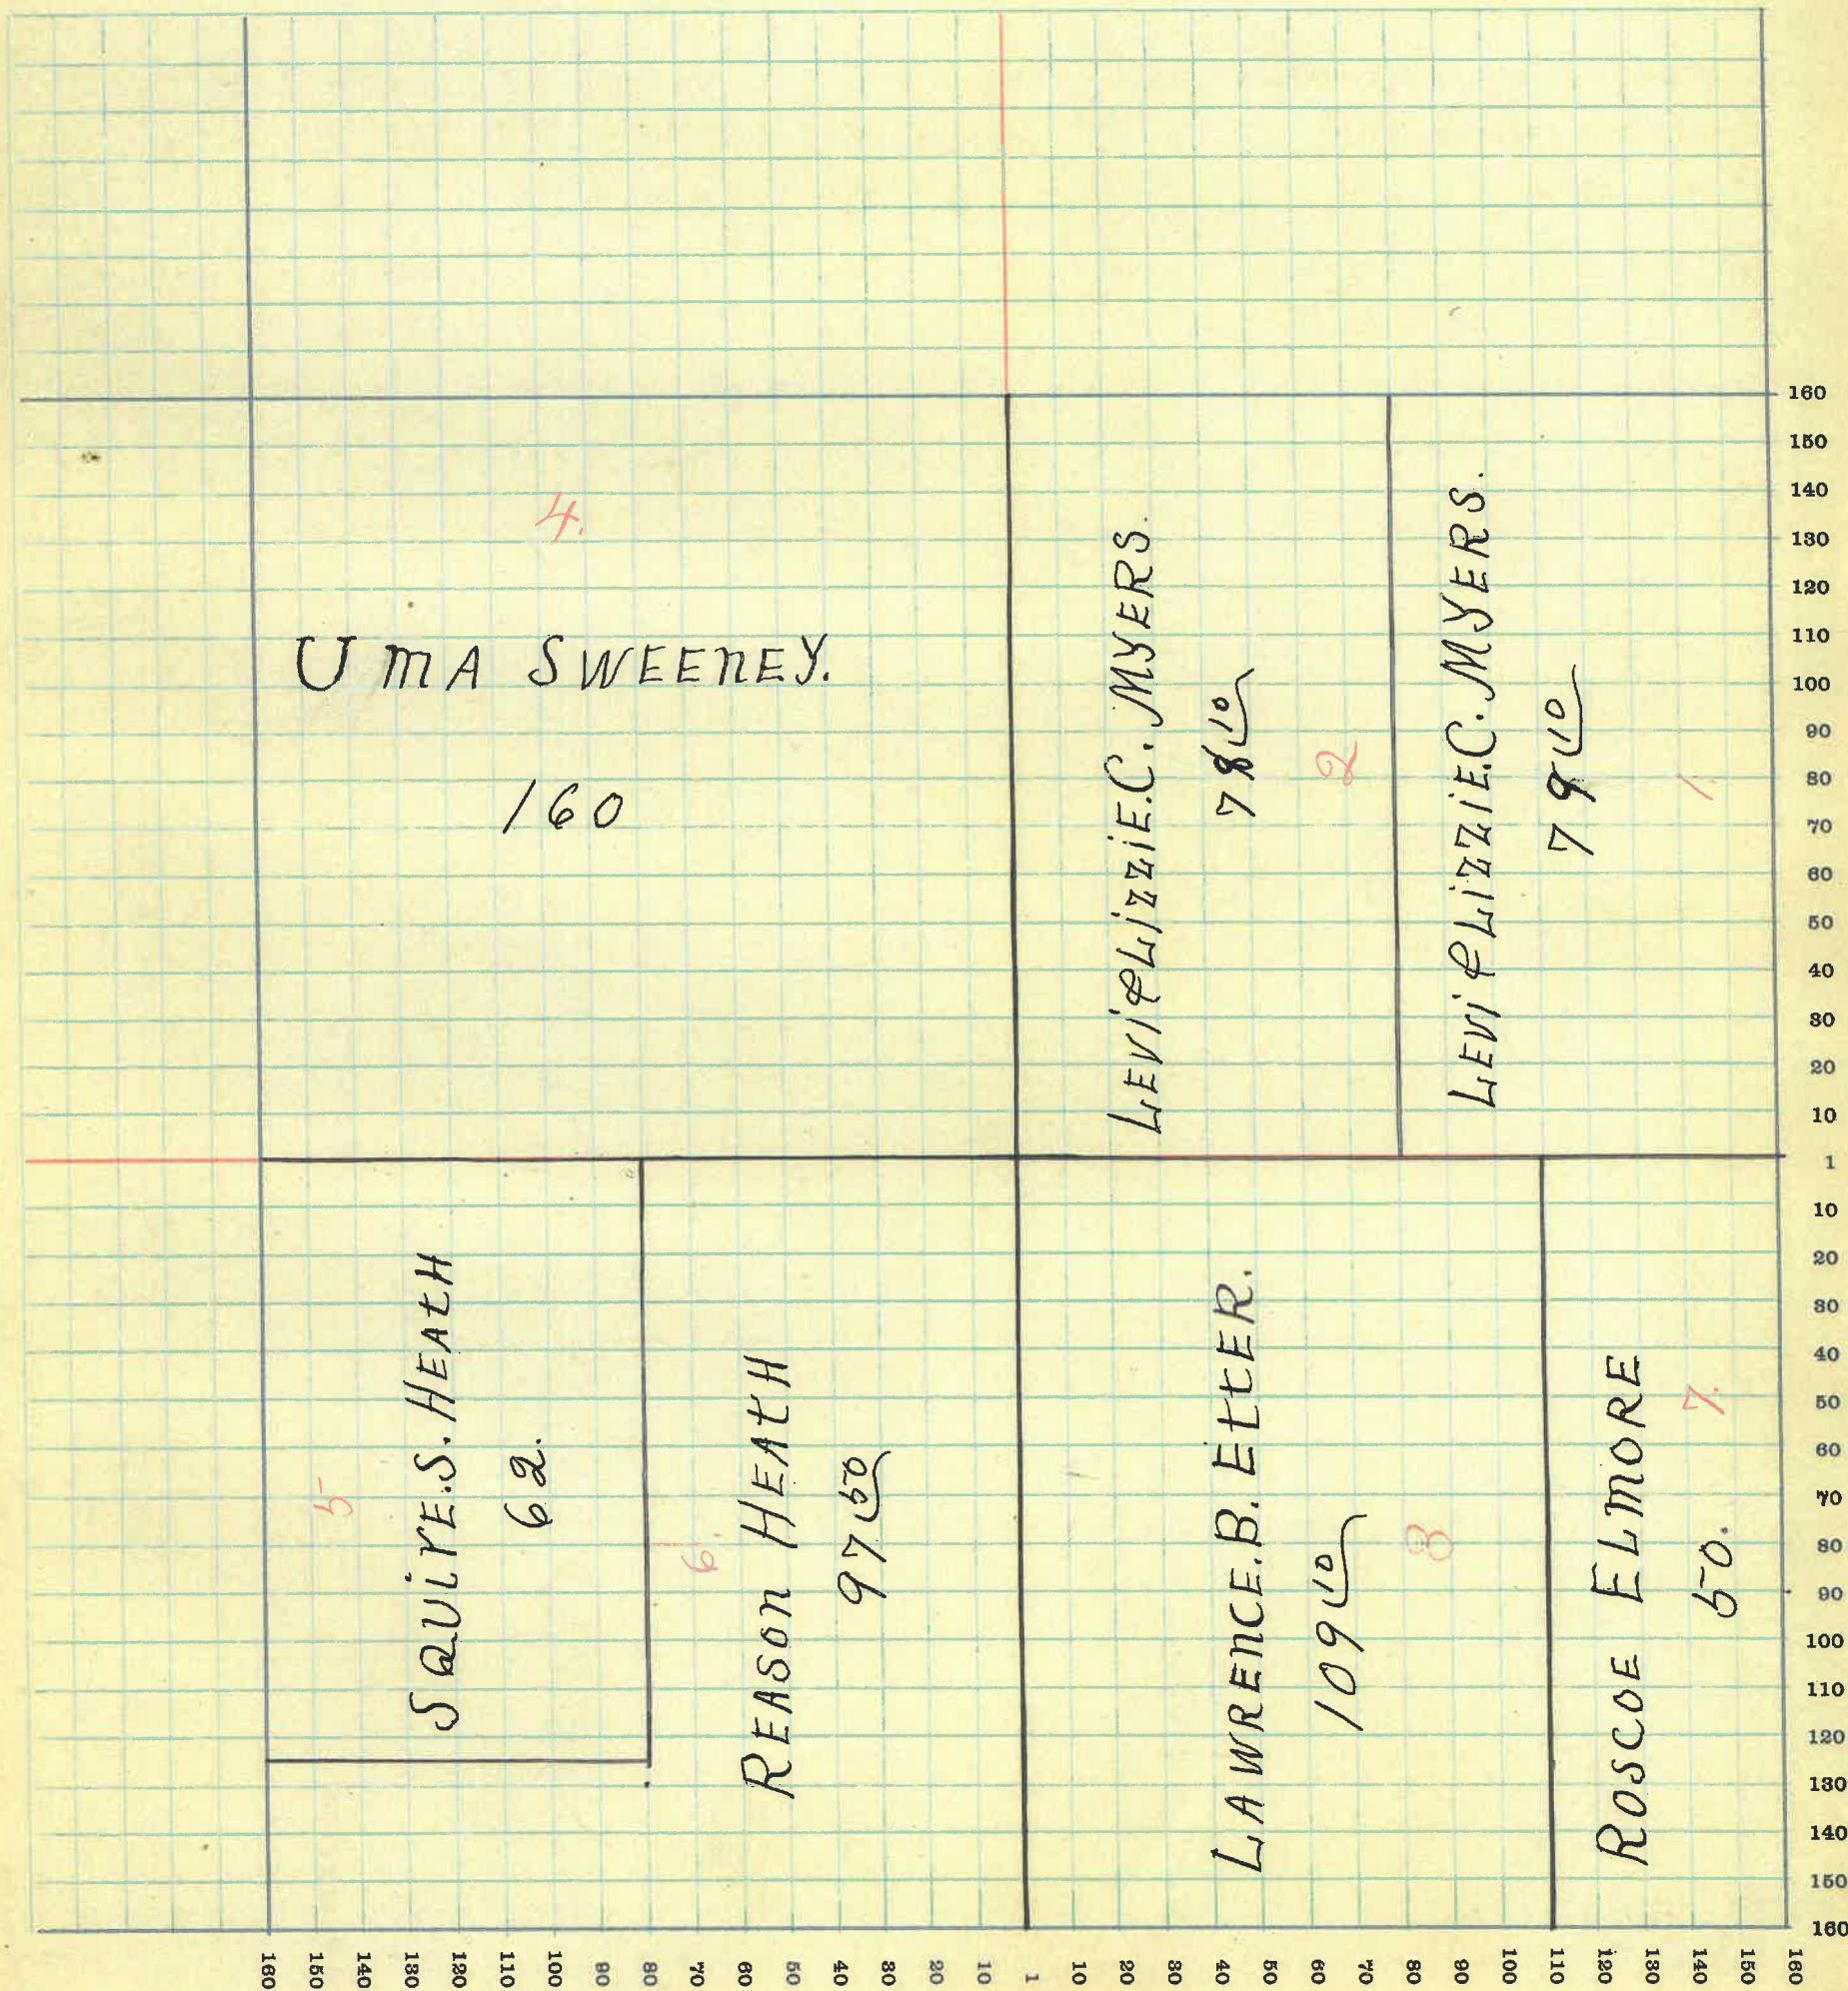 4.
UMA SWEENEY.
160
LEVI & LIZZIE.C. MYERS.
10
2
LEVI & LIZZIE.C. MYERS.
10
1.
5
SQUIRE.S. HEATH
62.
6.
REASON HEATH
97 50
LAWRENCE.B. ETTER.
109 10
3
ROSCOE ELMORE
7.
50.
160
150
140
130
120
110
100
90
80
70
60
50
40
30
20
10
1
10
20
30
40
50
60
70
80
90
100
110
120
130
140
150
160
160 150 140 130 120 110 100 90 80 70 60 50 40 30 20 10 1 10 20 30 40 50 60 70 80 90 100 110 120 130 140 150 160